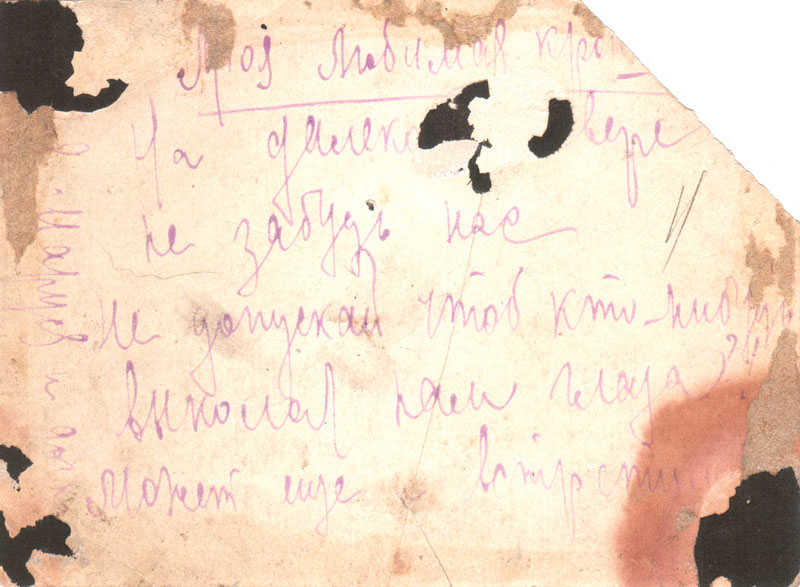 Моя любимая кры
На далеко вере
не забудь нас
не допускай чтоб кто-нибудь
выколол нам глаза?!
Может еще и встретим